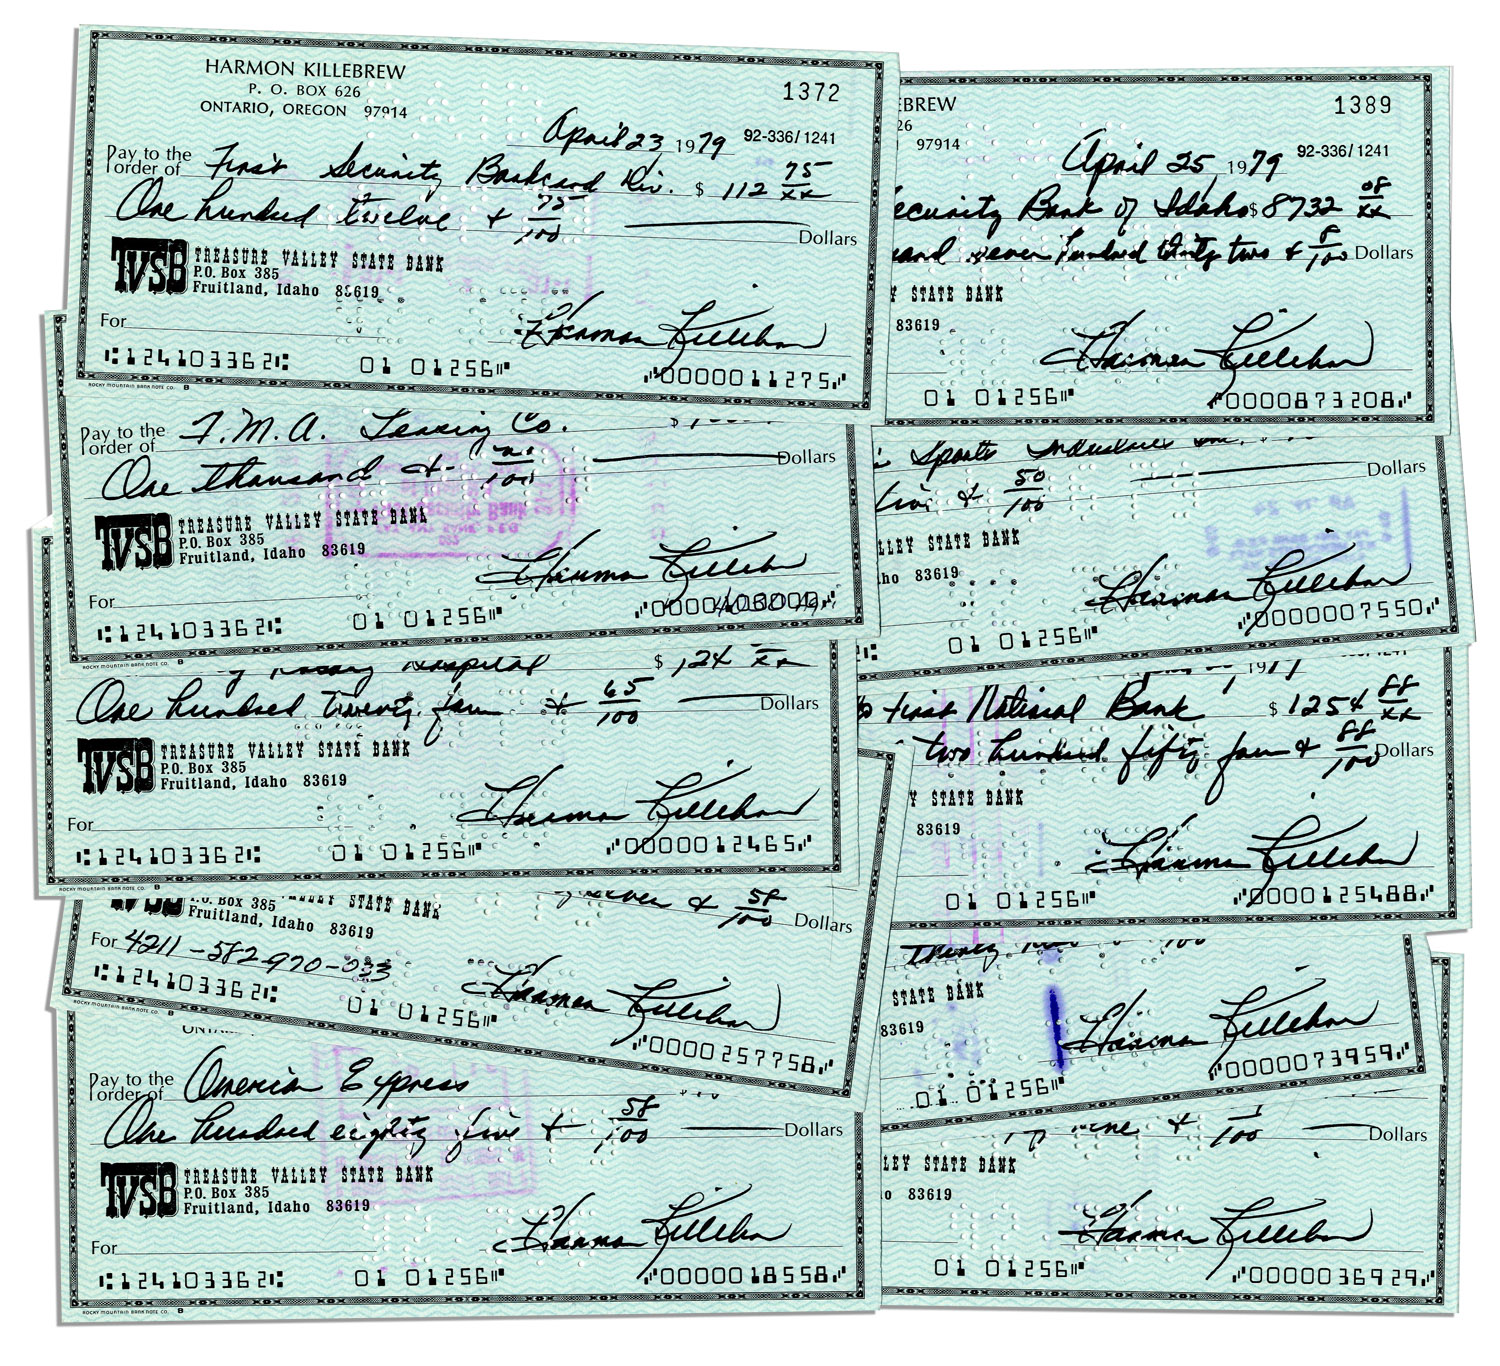 HARMON KILLEBREW
P. O. BOX 626
ONTARIO, OREGON 97914
1372
April 23 1979 92-336/1241
Pay to the order of First Security Bankcard Div. $ 112 75/xx
One hundred twelve + 75/100 Dollars
TVSB TREASURE VALLEY STATE BANK
P.O. Box 385
Fruitland, Idaho 83619
For Harmon Killebrew
124103362 01 01256 0000011275
ROCKY MOUNTAIN BANK NOTE CO. 8
Pay to the order of T.M.A. Leasing Co. $
One thousand + /100 Dollars
TVSB TREASURE VALLEY STATE BANK
P.O. Box 385
Fruitland, Idaho 83619
For Harmon Killebrew
124103362 01 01256
ROCKY MOUNTAIN BANK NOTE CO. 8
Rosary Hospital $ 124
One hundred twenty four + 65/100 Dollars
TVSB TREASURE VALLEY STATE BANK
P.O. Box 385
Fruitland, Idaho 83619
For Harmon Killebrew
124103362 01 01256 0000012465
ROCKY MOUNTAIN BANK NOTE CO. 8
+ 58/100 Dollars
TVSB STATE BANK
P.O. Box 385
Fruitland, Idaho 83619
For 4211-582-970-033 Harmon Killebrew
124103362 01 01256 0000257758
ROCKY MOUNTAIN BANK NOTE CO. 8
Pay to the order of American Express
One hundred eighty five + 58/100 Dollars
TVSB TREASURE VALLEY STATE BANK
P.O. Box 385
Fruitland, Idaho 83619
For Harmon Killebrew
124103362 01 01256 0000018558
ROCKY MOUNTAIN BANK NOTE CO. 8
EBREW
26
97914
1389
April 25, 1979 92-336/1241
ecurity Bank of Idaho $ 8732 08/xx
and seven hundred thirty two + 8/100 Dollars
Y STATE BANK
83619
Harmon Killebrew
01 01256 0000873208
Sports Industries Inc. $
five + 50/100 Dollars
LLEY STATE BANK
ho 83619
Harmon Killebrew
01 01256 0000007550
1979
First National Bank $ 1254 88/xx
two hundred fifty four + 88/100 Dollars
Y STATE BANK
83619
Harmon Killebrew
01 01256 0000125488
STATE BANK
83619
Harmon Killebrew
01 01256 0000073959
nine + /100 Dollars
LEY STATE BANK
o 83619
Harmon Killebrew
01 01256 0000036929